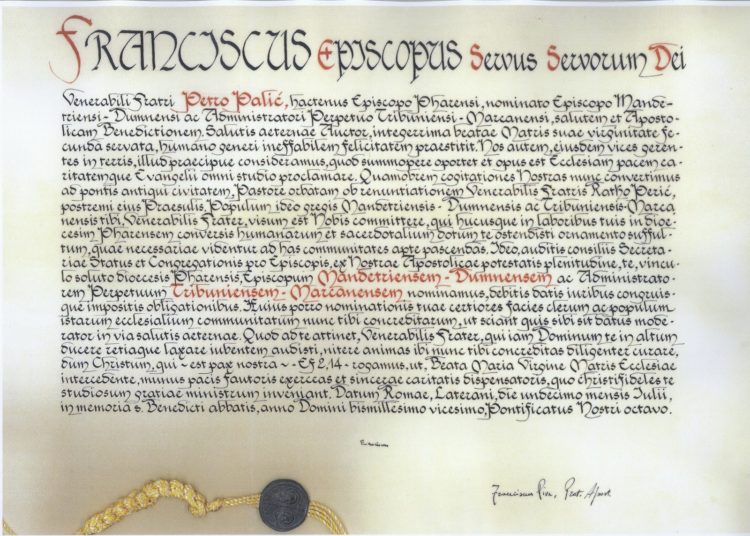 FRANCISCUS EPISCOPUS SERVUS SERVORUM DEI
Venerabili Fratri Petro Palić, hactenus Episcopo Pharensi, nominato Episcopo Mande-
triensi - Dumnensi ac Administratori Perpetuo Tribuniensi - Marcanensi, salutem et Aposto-
licam Benedictionem. Salutis aeternae Auctor, integerrima beatae Matris suae virginitate fe-
cunda servata, humano generi ineffabilem felicitatem praestitit. Nos autem, eiusdem vices geren-
tes in terris, illud praecipue consideramus, quod summopere oportet et opus est Ecclesiam pacem ca-
ritatemque Evangelii omni studio proclamare. Quamobrem cogitationes Nostras nunc convertimus
ad pontis antiqui civitatem, Pastore orbatam ob renuntiationem Venerabilis Fratris Ratho Perić,
postremi eius Praesulis, Populum ideo gregis Mandetriensis - Dumnensis ac Tribuniensis-Marca
nensis tibi, Venerabilis Frater, visum est Nobis committere, qui hucusque in laboribus tuis in dioe-
cesim Pharensem conversis humanarum et sacerdotalium dotum te ostendisti ornamento sufful-
tum, quae necessariae videntur ad has communitates apte pascendas. Ideo, auditis consiliis Secreta-
riae Status et Congregationis pro Episcopis, ex Nostrae Apostolicae potestatis plenitudine, te, vincu-
lo soluto dioecesis Pharensis, Episcopum Mandetriensem - Dumnensem ac Administrato-
rem Perpetuum Tribuniensem - Marcanensem nominamus, debitis datis iuribus congruis-
que impositis obligationibus. Huius porro nominationis tuae certiores facies clerum ac populum
istarum ecclesialium communitatum nunc tibi concreditarum, ut sciant quis sibi sit datus mode-
rator in via salutis aeternae. Quod ad te attinet, Venerabilis Frater, qui iam Dominum te in altum
ducere retiaque laxare iubentem audisti, nitere animas ibi nunc tibi concreditas diligenter curare,
dum Christum, qui - est pax nostra - Ef 2,14 - rogamus, ut, Beata Maria Virgine Matris Ecclesiae
intercedente, munus pacis fautoris exerceas et sincerae caritatis dispensatoris, quo christifideles te
studiosum gratiae ministrum inveniant. Datum Romae, Laterani, die undecimo mensis Iulii,
in memoria s. Benedicti abbatis, anno Domini bismillesimo vicesimo, Pontificatus Nostri octavo.
Franciscus
Franciscus Piva, Prot. Apost.